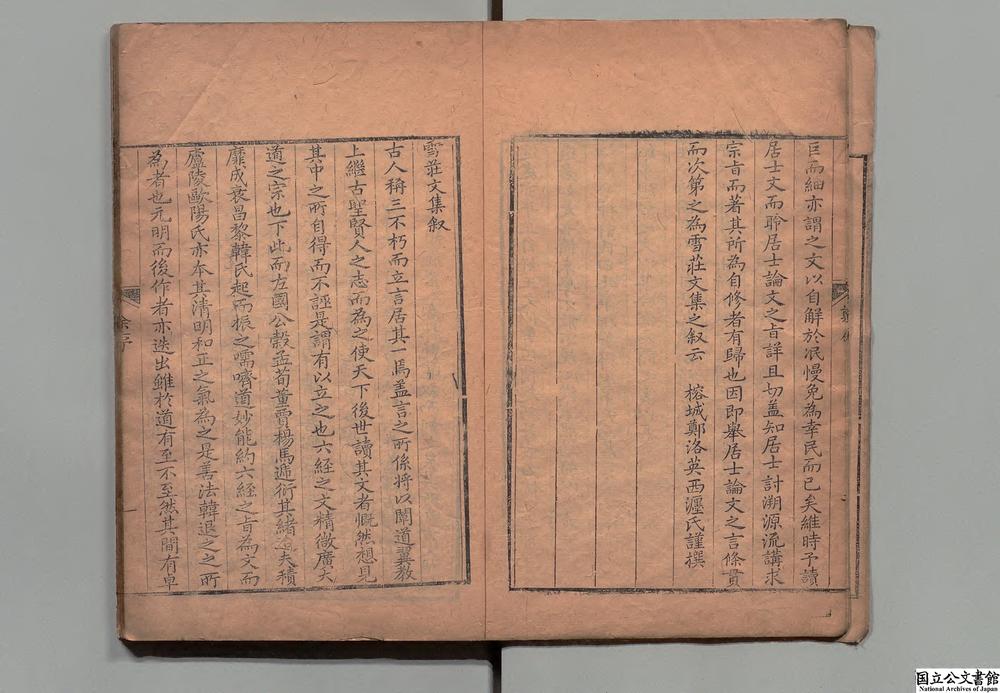 巨而細亦謂之文以自解於泯慢免為幸民而已矣維時予讀
居士文而聆居士論文之旨詳且切盖知居士討溯源流講求
宗旨而著其所為自修者有歸也因即舉居士論文之言條貫
而次第之為雪莊文集之叙云 榕城鄭洛英西瀍氏謹撰
雪莊文集叙
古人稱三不朽而立言居其一焉盖言之所係將以闡道翼教
上繼古聖賢人之志而為之使天下後世讀其文者慨然想見
其中之所自得而不誣是謂有以立之也六經之文精微廣大
道之宗也下此而左國公穀孟荀董賈楊馬遞衍其緒逮夫積
靡成衰昌黎韓氏起而振之嚅嚌道妙能約六經之旨為文而
廬陵歐陽氏亦本其清明和正之氣為之是善法韓退之之所
為者也元明而後作者亦迭出雖於道有至不至然其間有卓
序
国立公文書館
National Archives of Japan